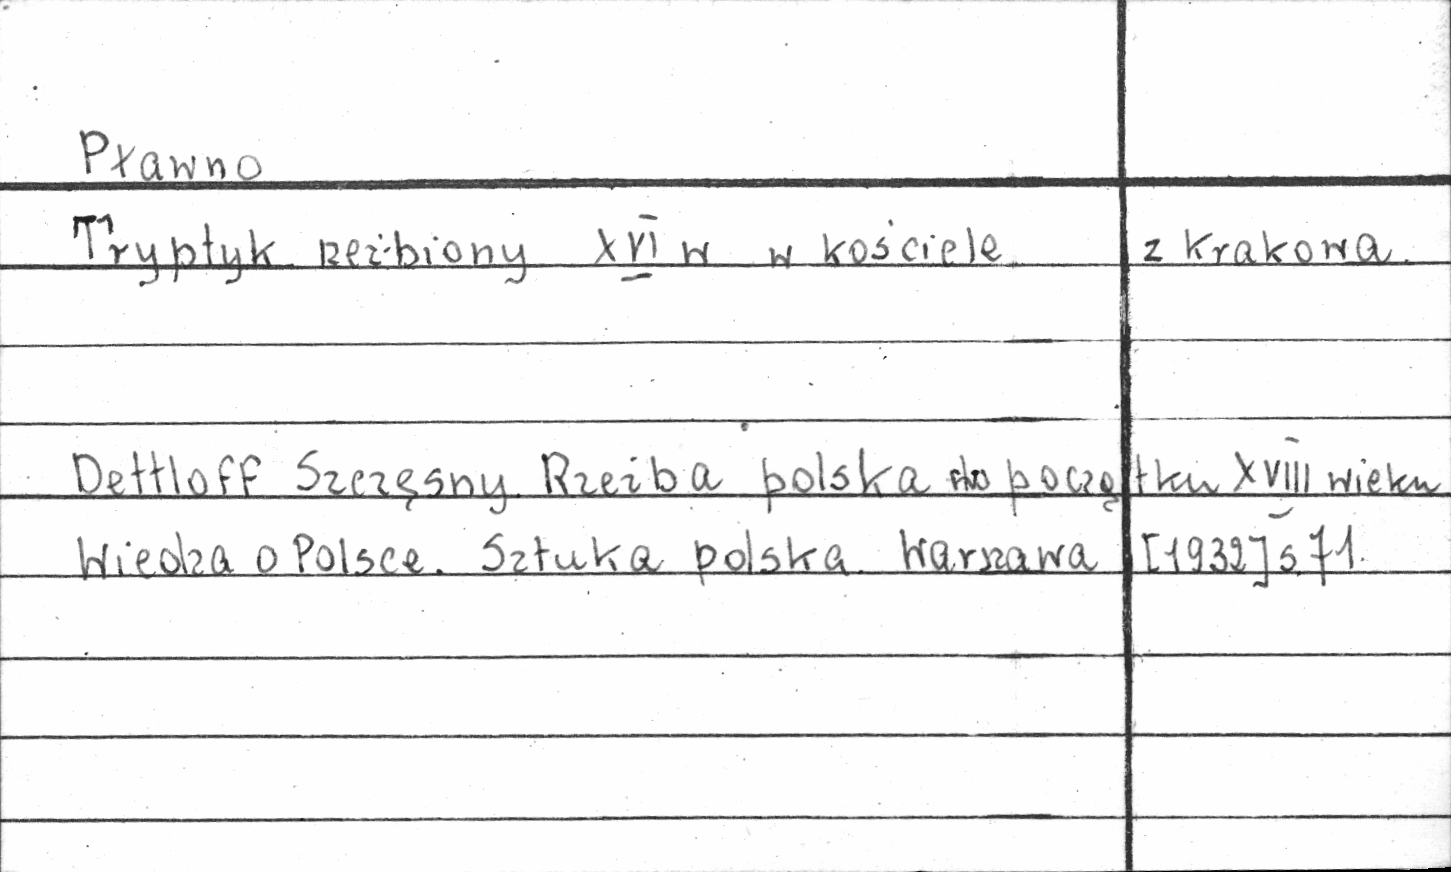 Pławno
Tryptyk rzeźbiony XVI w w kościele z Krakowa.
Dettloff Szczęsny. Rzeźba polska do początku XVIII wieku
Wiedza o Polsce. Sztuka polska. Warszawa [1932] s. 71.